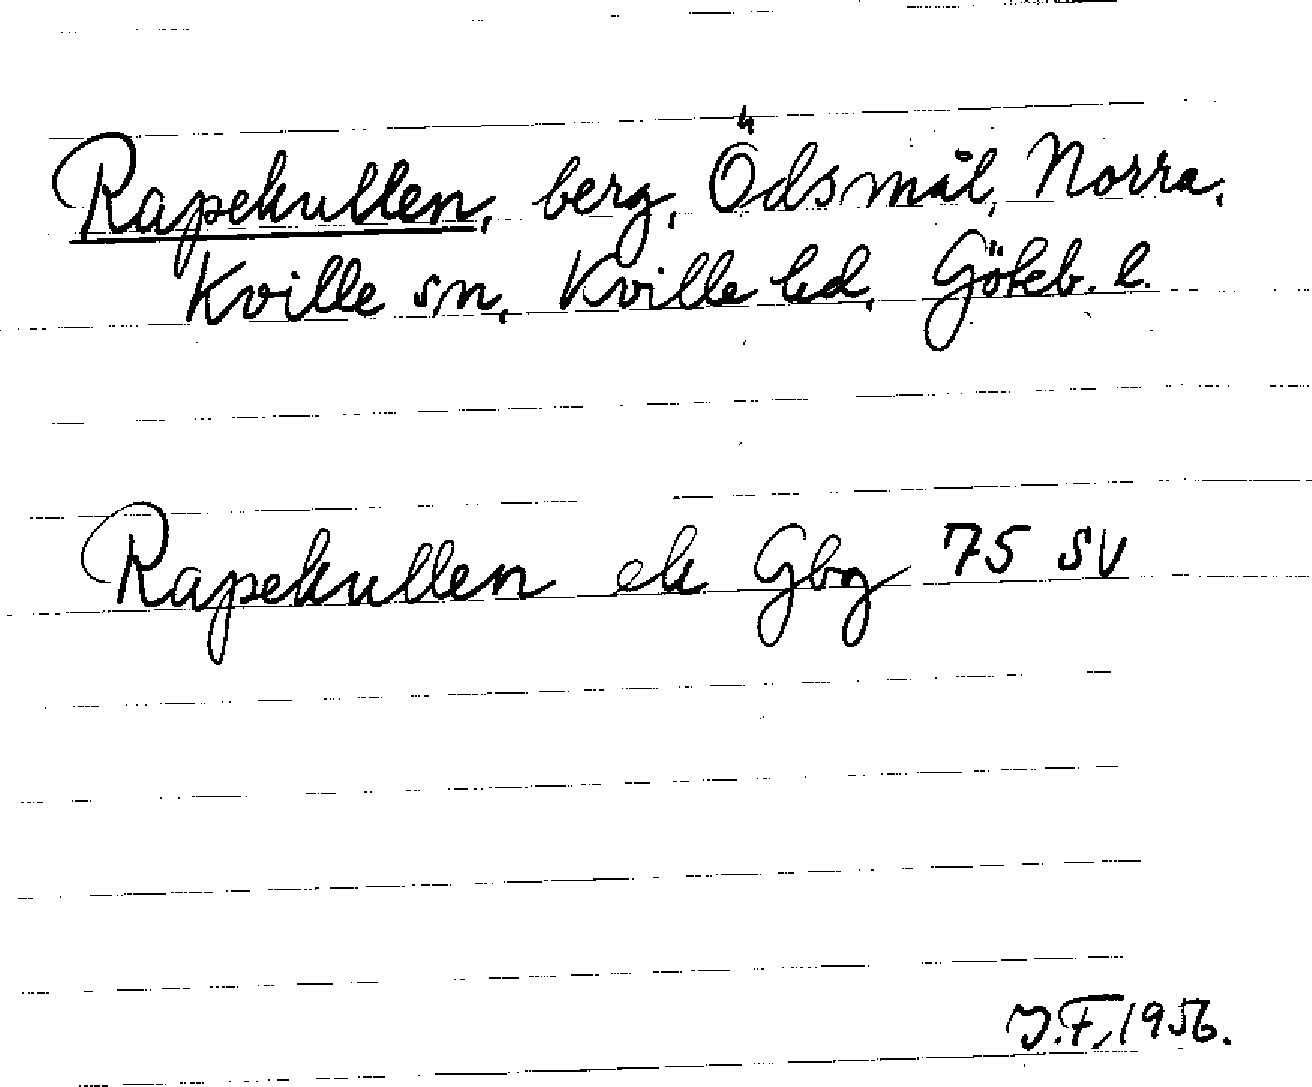 Rapekullen, berg, Ödsmål, Norra,
Kville sn, Kville hd, Göteb. l.
Rapekullen ek Gbg 75 SV
J.F. 1956.